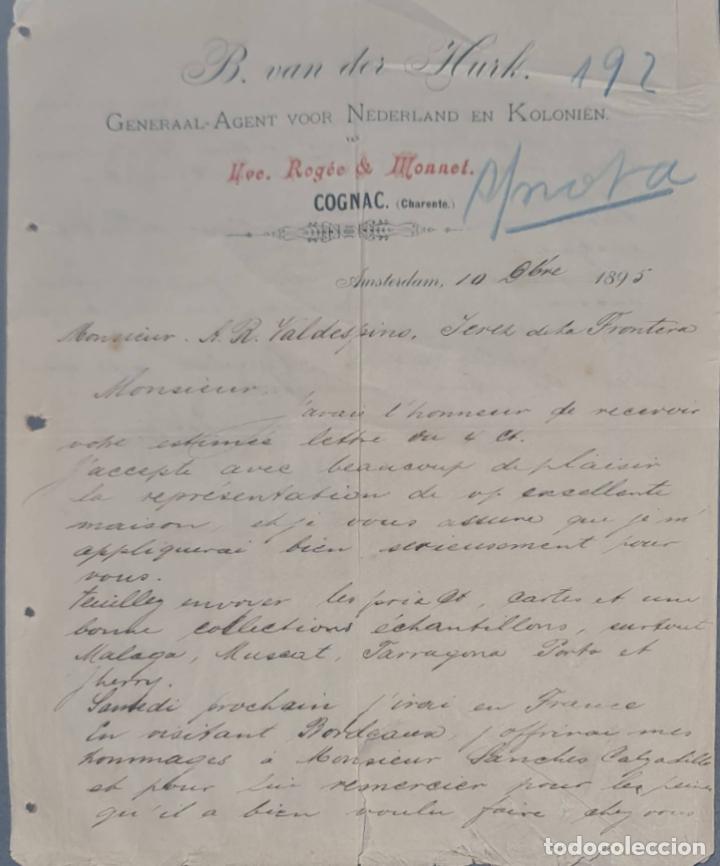 B. van der Hurk. 192
GENERAAL-AGENT VOOR NEDERLAND EN KOLONIËN.
van
Vve. Rogée & Monnet.
COGNAC. (Charente.)
Amsterdam, 10 9bre 1895
Monsieur A. R. Valdespino, Jerez de la Frontera
Monsieur.
j'avais l'honneur de recevoir
votre estimée lettre du 4 Ct.
J'accepte avec beaucoup de plaisir
la représentation de vp excellente
maison, et je vous assure que je m'
appliquerai bien serieusement pour
vous.
Veuillez envoyer les prix Ct, cartes et une
bonne collections échantillons, surtout
Malaga, Muscat, Tarragona Porto et
Sherry.
Samedi prochain j'irai en France
En visitant Bordeaux, j'offrirai mes
hommages à Monsieur Sanches Calzadilla
et pour lui remercier pour les peines
qu'il a bien voulu faire chez vous
todocoleccion